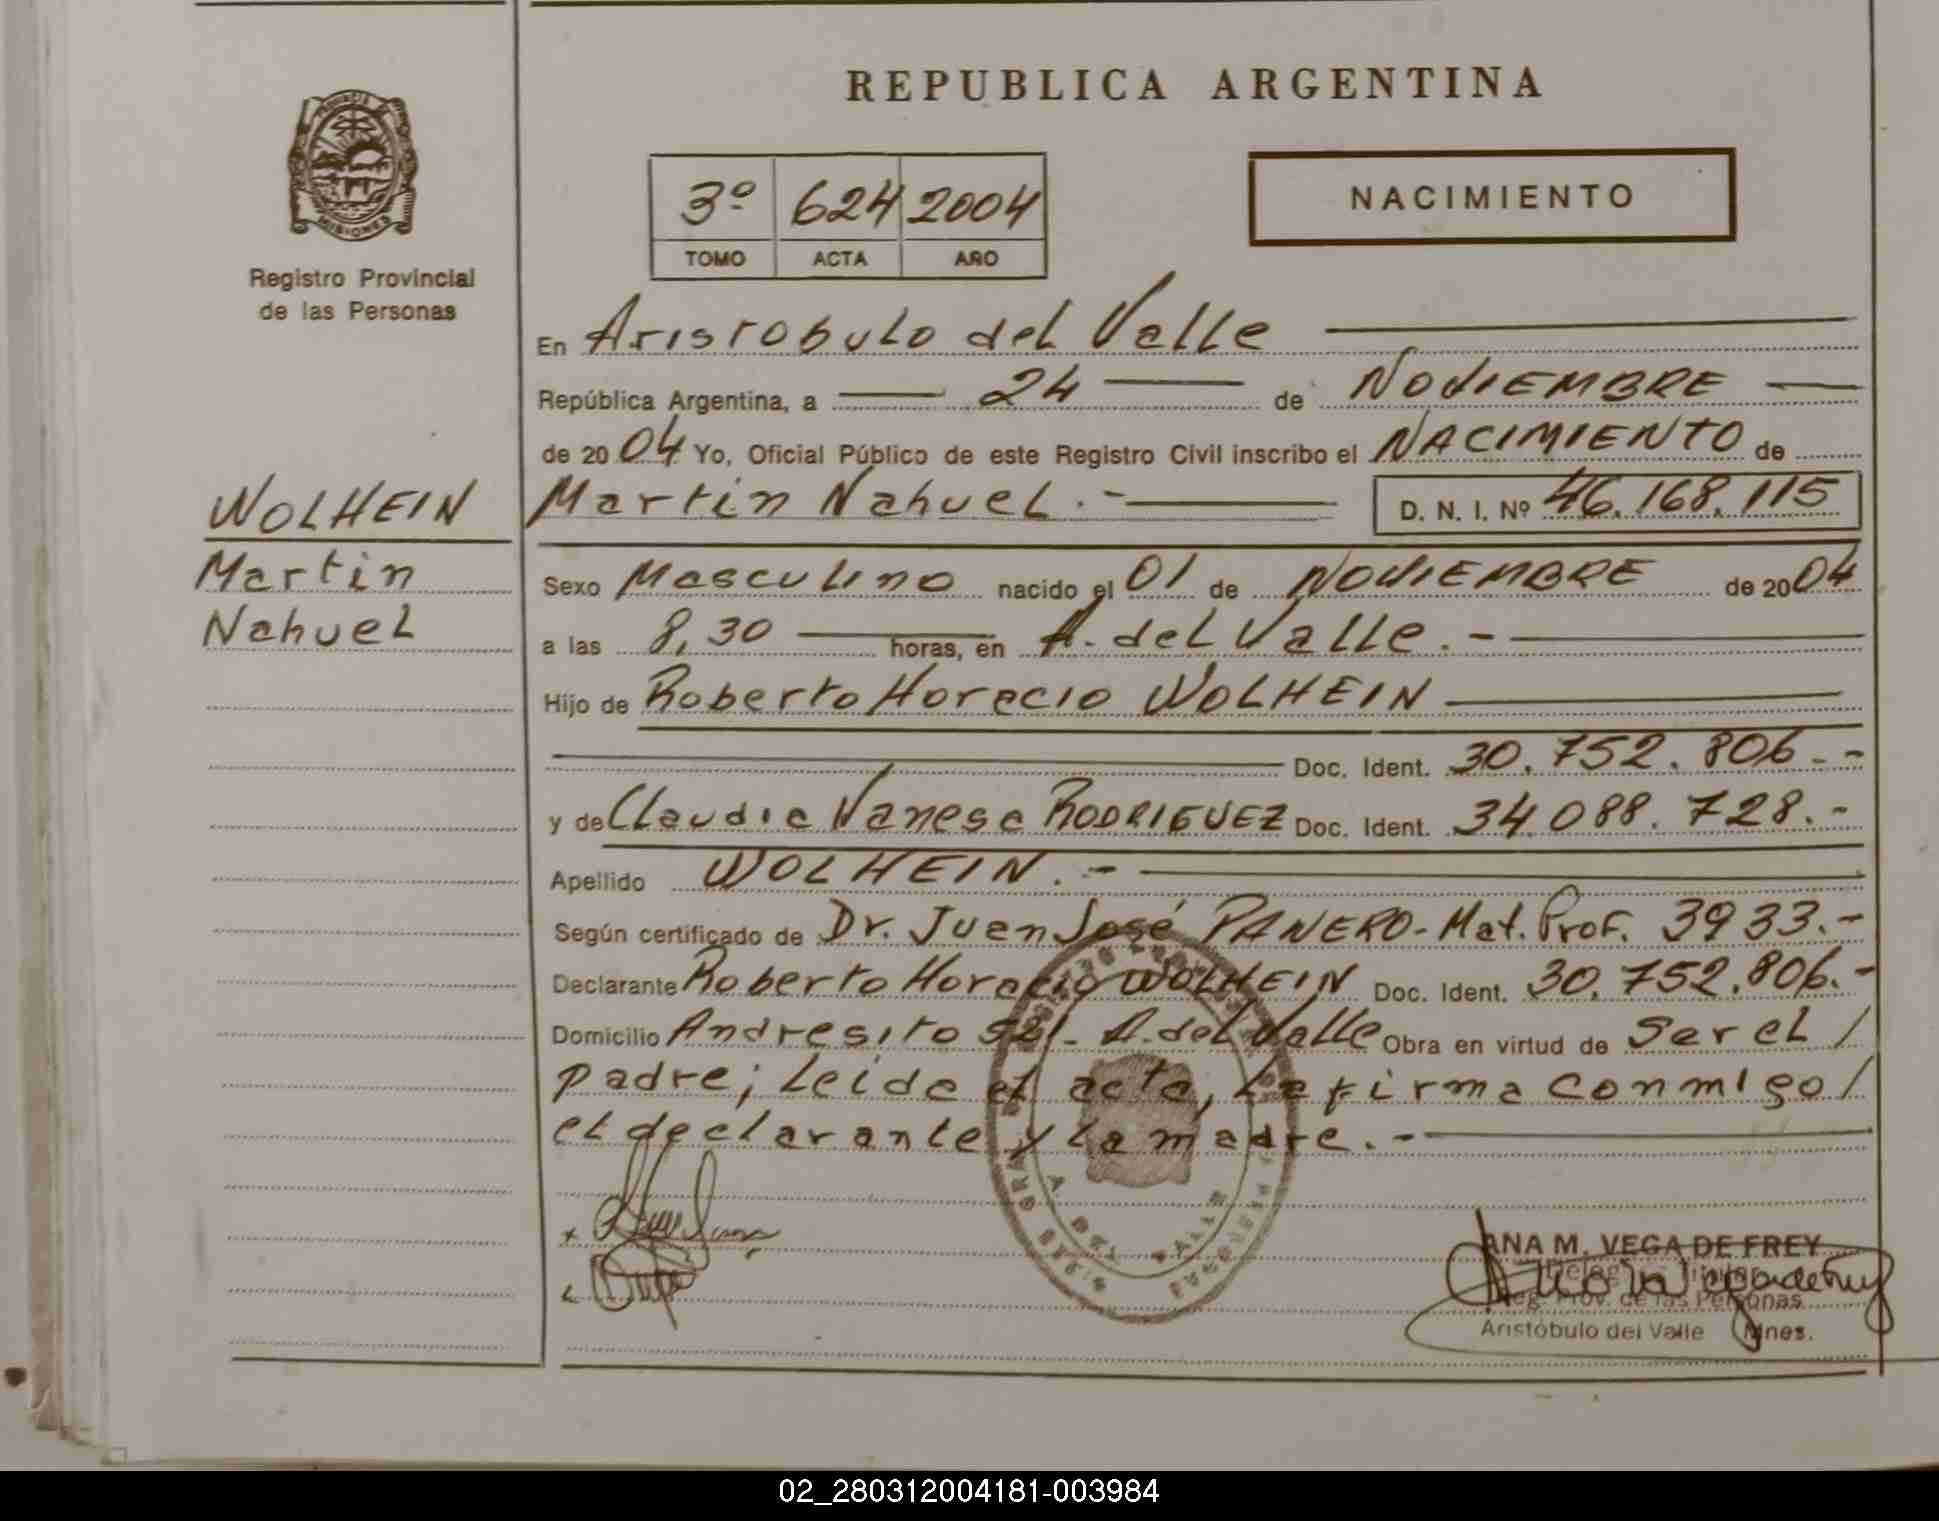 REPUBLICA ARGENTINA
PROVINCIA DE
MISIONES
Registro Provincial
de las Personas
3º 624 2004
TOMO ACTA AÑO
NACIMIENTO
En Arisrobulo del Valle
República Argentina, a 24 de NOVIEMBRE
de 2004 Yo, Oficial Público de este Registro Civil inscribo el NACIMIENTO de
WOLHEIN
Martin
Nahuel
Martin Nahuel.- D. N. I. Nº 46.168.115
Sexo Masculino nacido el 01 de NOVIEMBRE de 2004
a las 8,30 horas, en A. del Valle.-
Hijo de Roberto Horacio WOLHEIN
Doc. Ident. 30.752.806.-
y de Claudia Vanesa RODRIGUEZ Doc. Ident. 34.088.728.-
Apellido WOLHEIN.-
Según certificado de Dr. Juan José PANERO-Mat. Prof. 3933.-
Declarante Roberto Horacio WOLHEIN Doc. Ident. 30.752.806.-
Domicilio Andresito S/N- A. del Valle Obra en virtud de ser el /
padre; Leida el acta, La firma conmigo /
el declarante y La madre.-
A. DEL VALLE
ANA M. VEGA DE FREY
Delegada Titular
Reg. Prov. de las Personas
Aristóbulo del Valle Mnes.
02_280312004181-003984